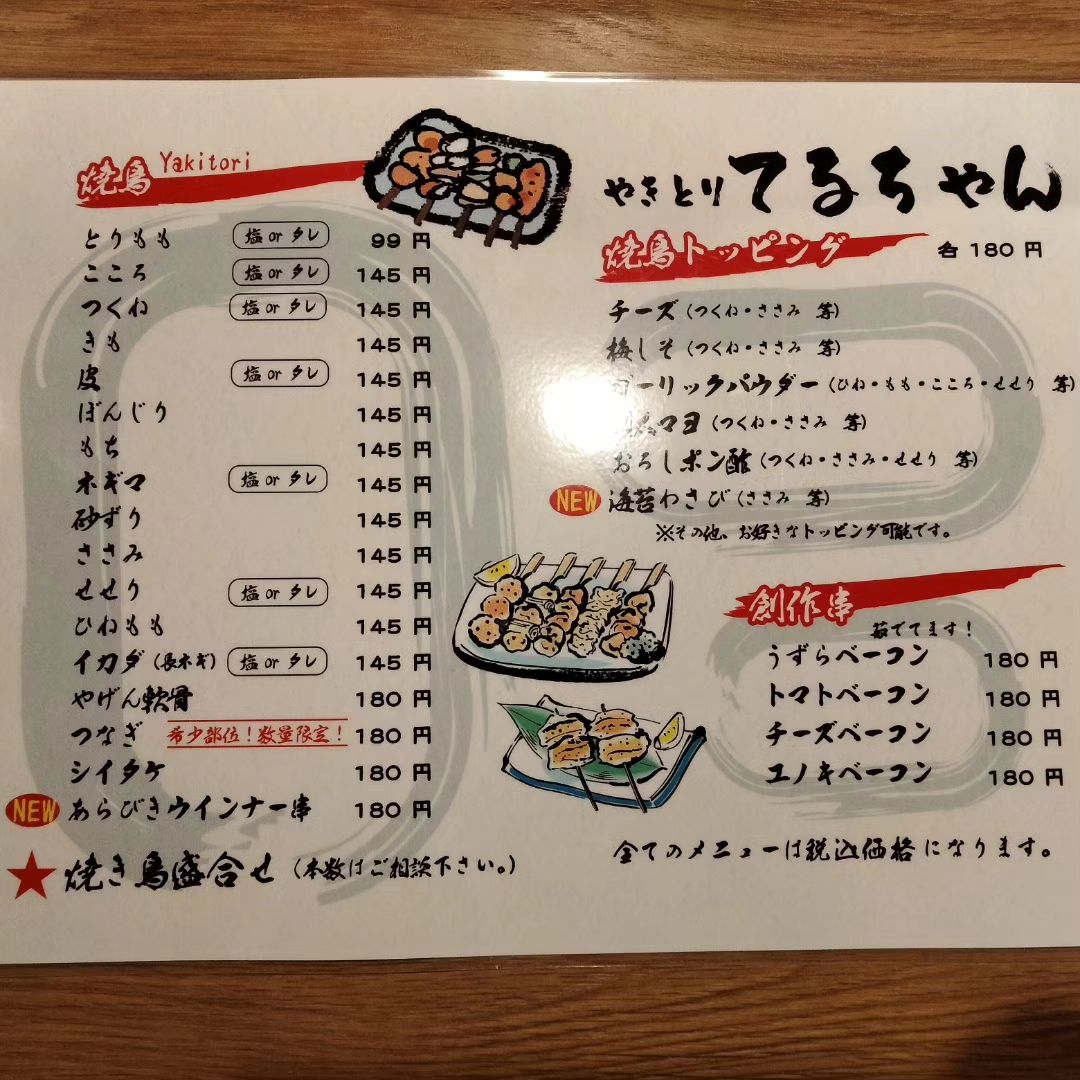 焼鳥 Yakitori
とりもも 塩 or タレ 99 円
こころ 塩 or タレ 145 円
つくね 塩 or タレ 145 円
きも 145 円
皮 塩 or タレ 145 円
ぼんじり 145 円
もち 145 円
ネギマ 塩 or タレ 145 円
砂ずり 145 円
ささみ 145 円
せせり 塩 or タレ 145 円
ひねもも 145 円
イカダ (長ネギ) 塩 or タレ 145 円
やげん軟骨 180 円
つなぎ 希少部位!数量限定! 180 円
シイタケ 180 円
NEW あらびきウインナー串 180 円
★焼き鳥盛合せ (本数はご相談下さい。)
やきとり てるちゃん
焼鳥トッピング 各 180 円
チーズ (つくね・ささみ 等)
梅しそ (つくね・ささみ 等)
ガーリックパウダー (ひね・もも・こころ・せせり 等)
マヨ (つくね・ささみ 等)
おろしポン酢 (つくね・ささみ・せせり 等)
NEW 海苔わさび (ささみ 等)
※その他、お好きなトッピング可能です。
創作串
茹でてます!
うずらベーコン 180 円
トマトベーコン 180 円
チーズベーコン 180 円
エノキベーコン 180 円
全てのメニューは税込価格になります。